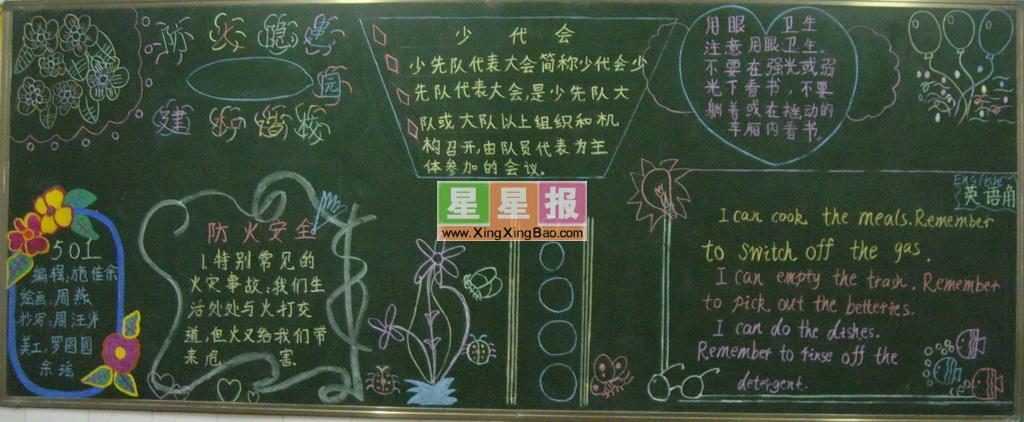 防火隐患
园
建和谐校
少代会
少先队代表大会简称少代会少
先队代表大会,是少先队大
队或大队以上组织和机
构召开,由队员代表为主
体参加的会议。
用眼卫生
注意用眼卫生。
不要在强光或弱
光下看书,不要
躺着或在摇动的
车厢内看书。
星星报
www.XingXingBao.com
501
编程:施佳余
绘画:周燕
抄写:周汪洋
美工:罗圆圆
余瑶
防火安全
1.特别常见的
火灾事故:我们生
活处处与火打交
道,但火又给我们带
来危害。
English
英语角
I can cook the meals.Remember
to switch off the gas.
I can empty the trash. Remember
to pick out the betteries.
I can do the dishes.
Remember to rinse off the
detergent.